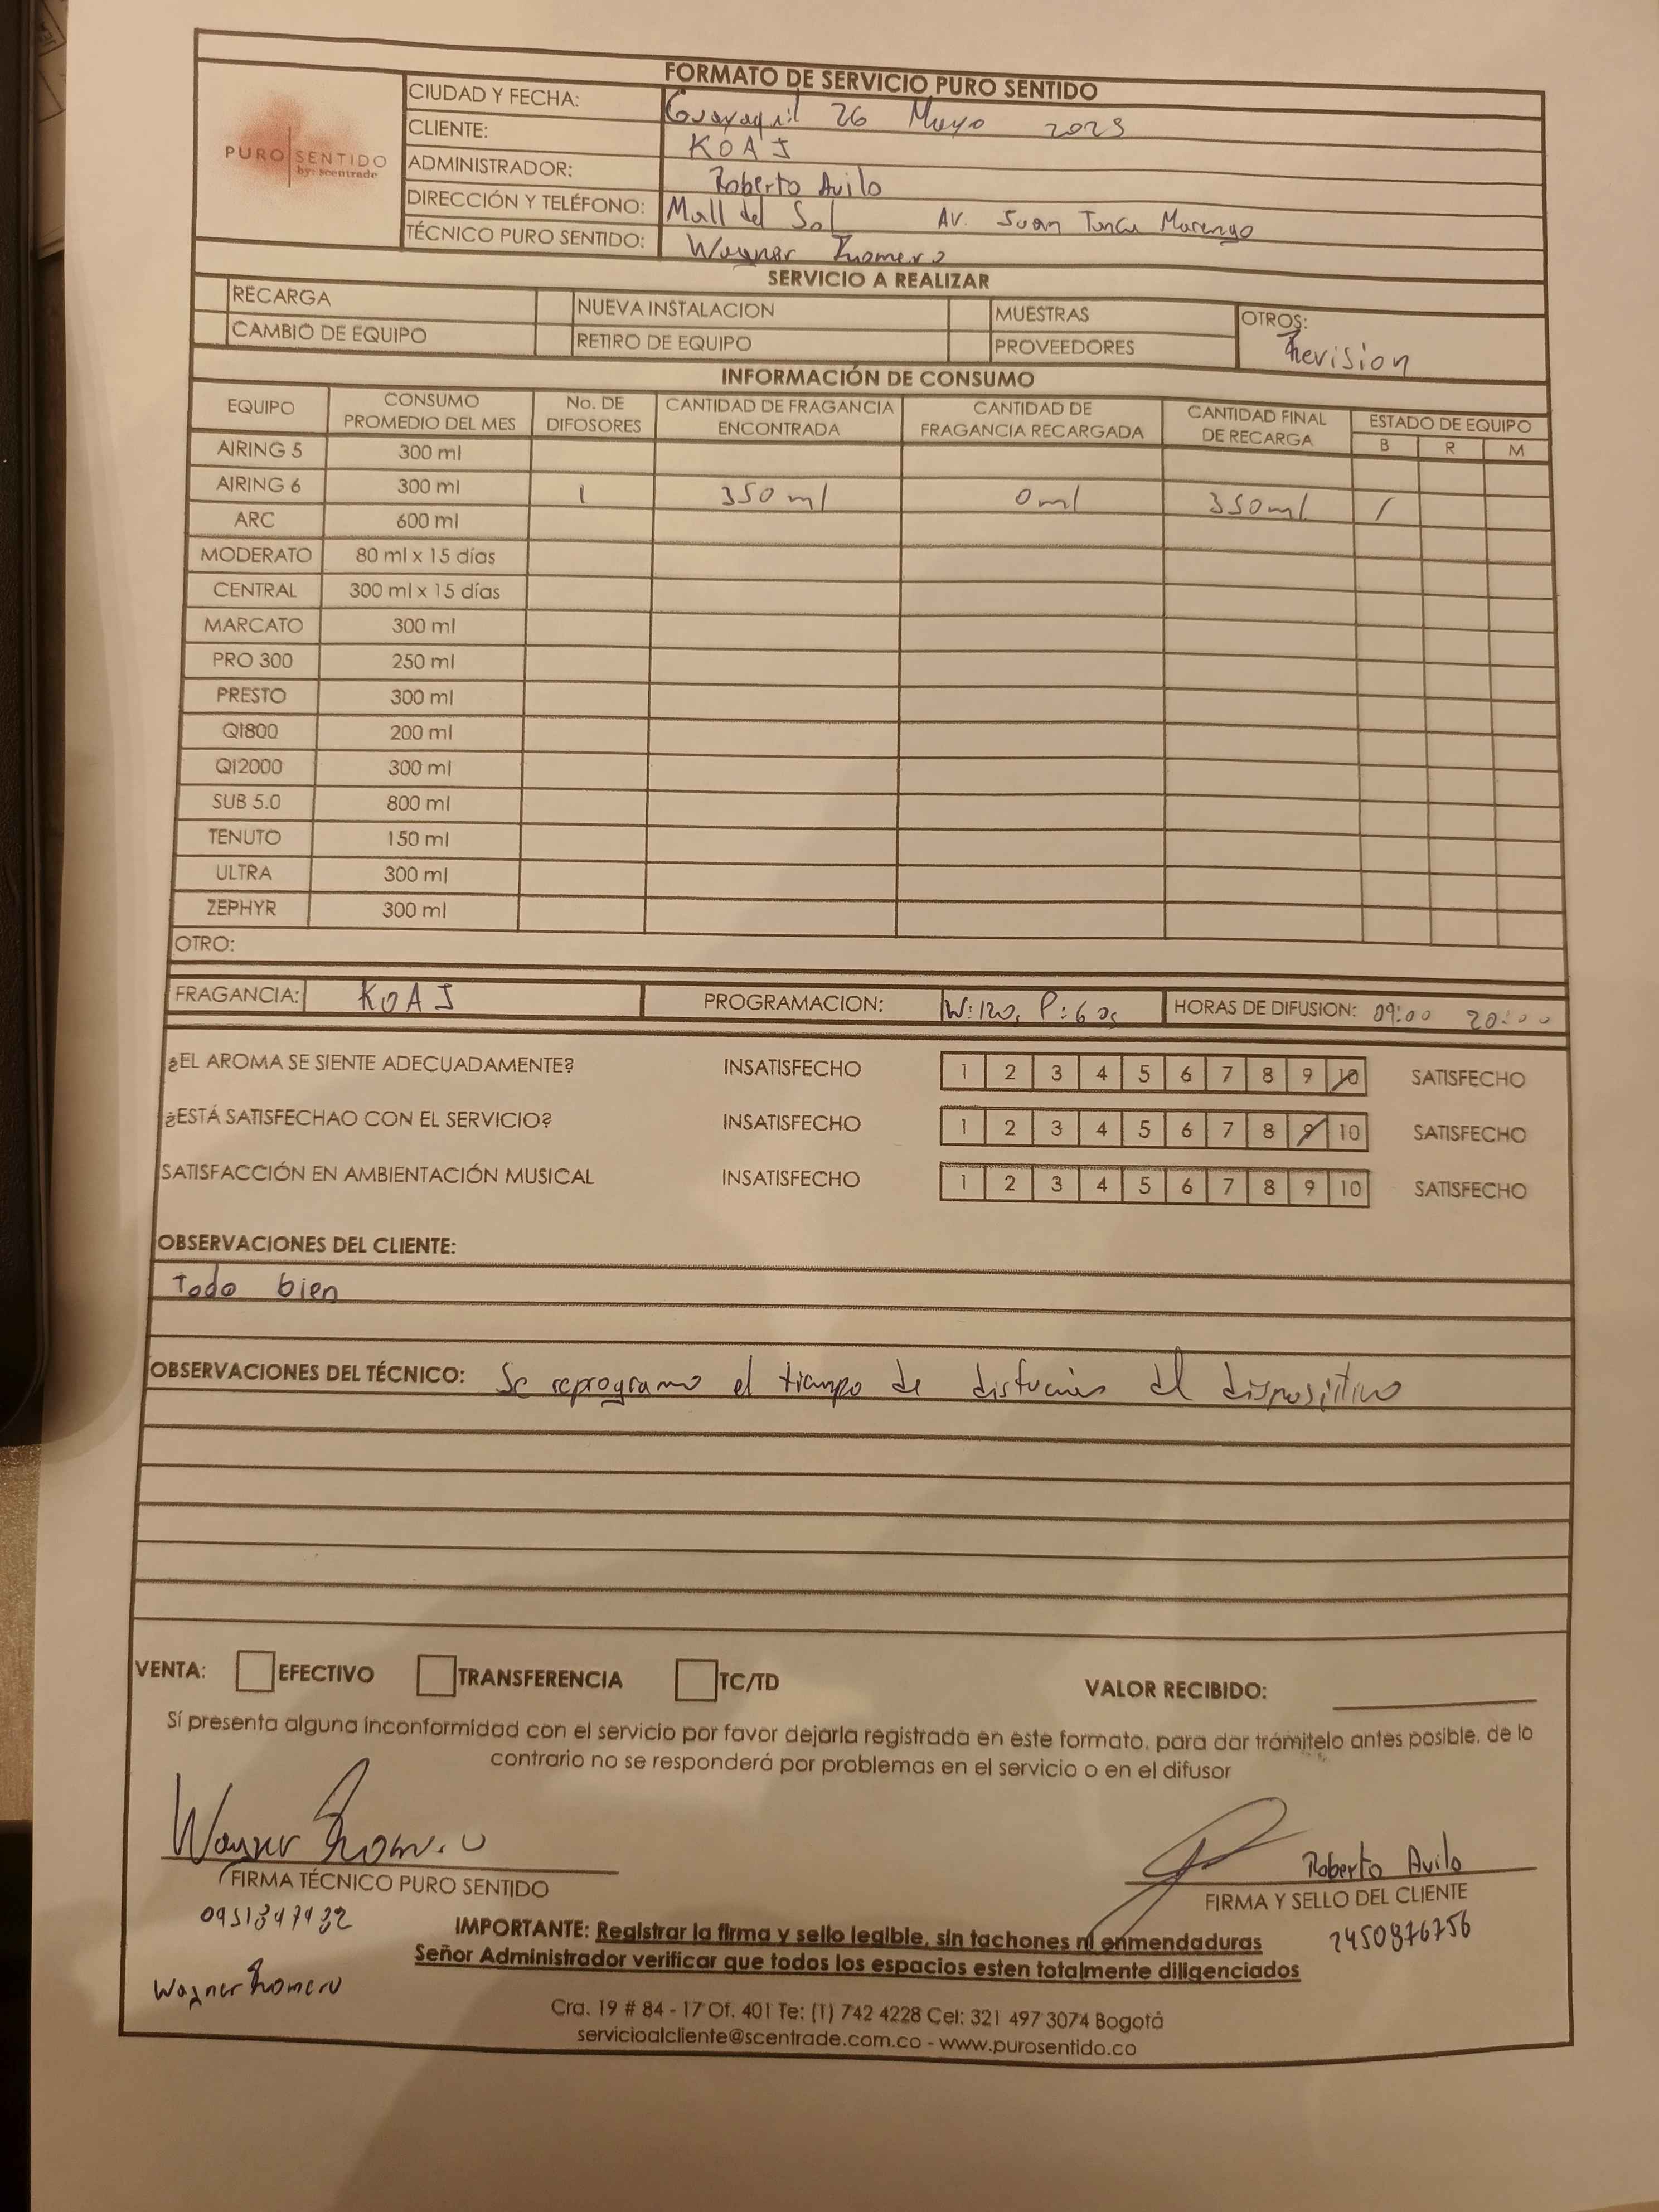 FORMATO DE SERVICIO PURO SENTIDO
PURO SENTIDO
by: scentrade
CIUDAD Y FECHA: Guayaquil 26 Mayo 2023
CLIENTE: KOAJ
ADMINISTRADOR: Roberto Avila
DIRECCIÓN Y TELÉFONO: Mall del Sol AV. Juan Tanca Marengo
TÉCNICO PURO SENTIDO: Wagner Romero
SERVICIO A REALIZAR
RECARGA NUEVA INSTALACION MUESTRAS OTROS:
CAMBIO DE EQUIPO RETIRO DE EQUIPO PROVEEDORES Revision
INFORMACIÓN DE CONSUMO
EQUIPO CONSUMO PROMEDIO DEL MES No. DE DIFOSORES CANTIDAD DE FRAGANCIA ENCONTRADA CANTIDAD DE FRAGANCIA RECARGADA CANTIDAD FINAL DE RECARGA ESTADO DE EQUIPO
B R M
AIRING 5 300 ml
AIRING 6 300 ml 1 350 ml 0 ml 350 ml /
ARC 600 ml
MODERATO 80 ml x 15 días
CENTRAL 300 ml x 15 días
MARCATO 300 ml
PRO 300 250 ml
PRESTO 300 ml
QI800 200 ml
QI2000 300 ml
SUB 5.0 800 ml
TENUTO 150 ml
ULTRA 300 ml
ZEPHYR 300 ml
OTRO:
FRAGANCIA: KOAJ PROGRAMACION: W:120s P:60s HORAS DE DIFUSION: 09:00 20:00
¿EL AROMA SE SIENTE ADECUADAMENTE? INSATISFECHO 1 2 3 4 5 6 7 8 9 10 SATISFECHO
¿ESTÁ SATISFECHAO CON EL SERVICIO? INSATISFECHO 1 2 3 4 5 6 7 8 9 10 SATISFECHO
SATISFACCIÓN EN AMBIENTACIÓN MUSICAL INSATISFECHO 1 2 3 4 5 6 7 8 9 10 SATISFECHO
OBSERVACIONES DEL CLIENTE:
Todo bien
OBSERVACIONES DEL TÉCNICO: Se reprogramo el tiempo de disfucion del dispositivo
VENTA: EFECTIVO TRANSFERENCIA TC/TD VALOR RECIBIDO:
Sí presenta alguna inconformidad con el servicio por favor dejarla registrada en este formato, para dar trámitelo antes posible, de lo
contrario no se responderá por problemas en el servicio o en el difusor
Wagner Romero Roberto Avila
FIRMA TÉCNICO PURO SENTIDO FIRMA Y SELLO DEL CLIENTE
2450876756
IMPORTANTE: Registrar la firma y sello legible, sin tachones ni enmendaduras
Señor Administrador verificar que todos los espacios esten totalmente diligenciados
Wagner Romero
Cra. 19 # 84 - 17 Of. 401 Te: (1) 742 4228 Cel: 321 497 3074 Bogotá
servicioalcliente@scentrade.com.co - www.purosentido.co